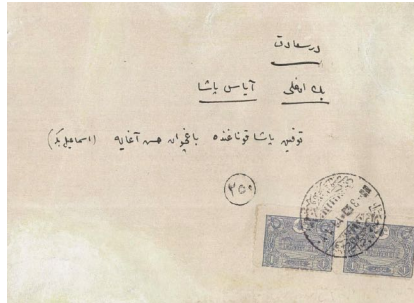 درسعادت
بك اوغلى آياس پاشا
توفيق پاشا قوناغنده باغچوان حسن آغايه (اسماعيل بك)
٢٥٥